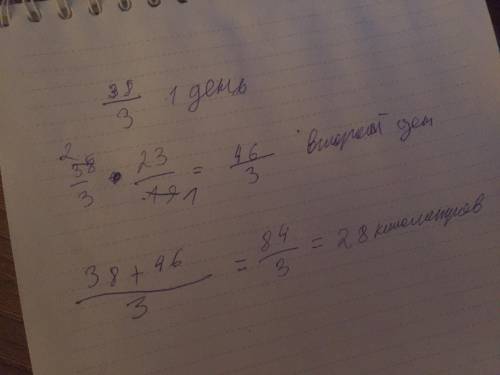 38/3 1 день
2 38/3 • 23/19 1 = 46/3 второй ден
38 + 46/3 = 84/3 = 28 километров